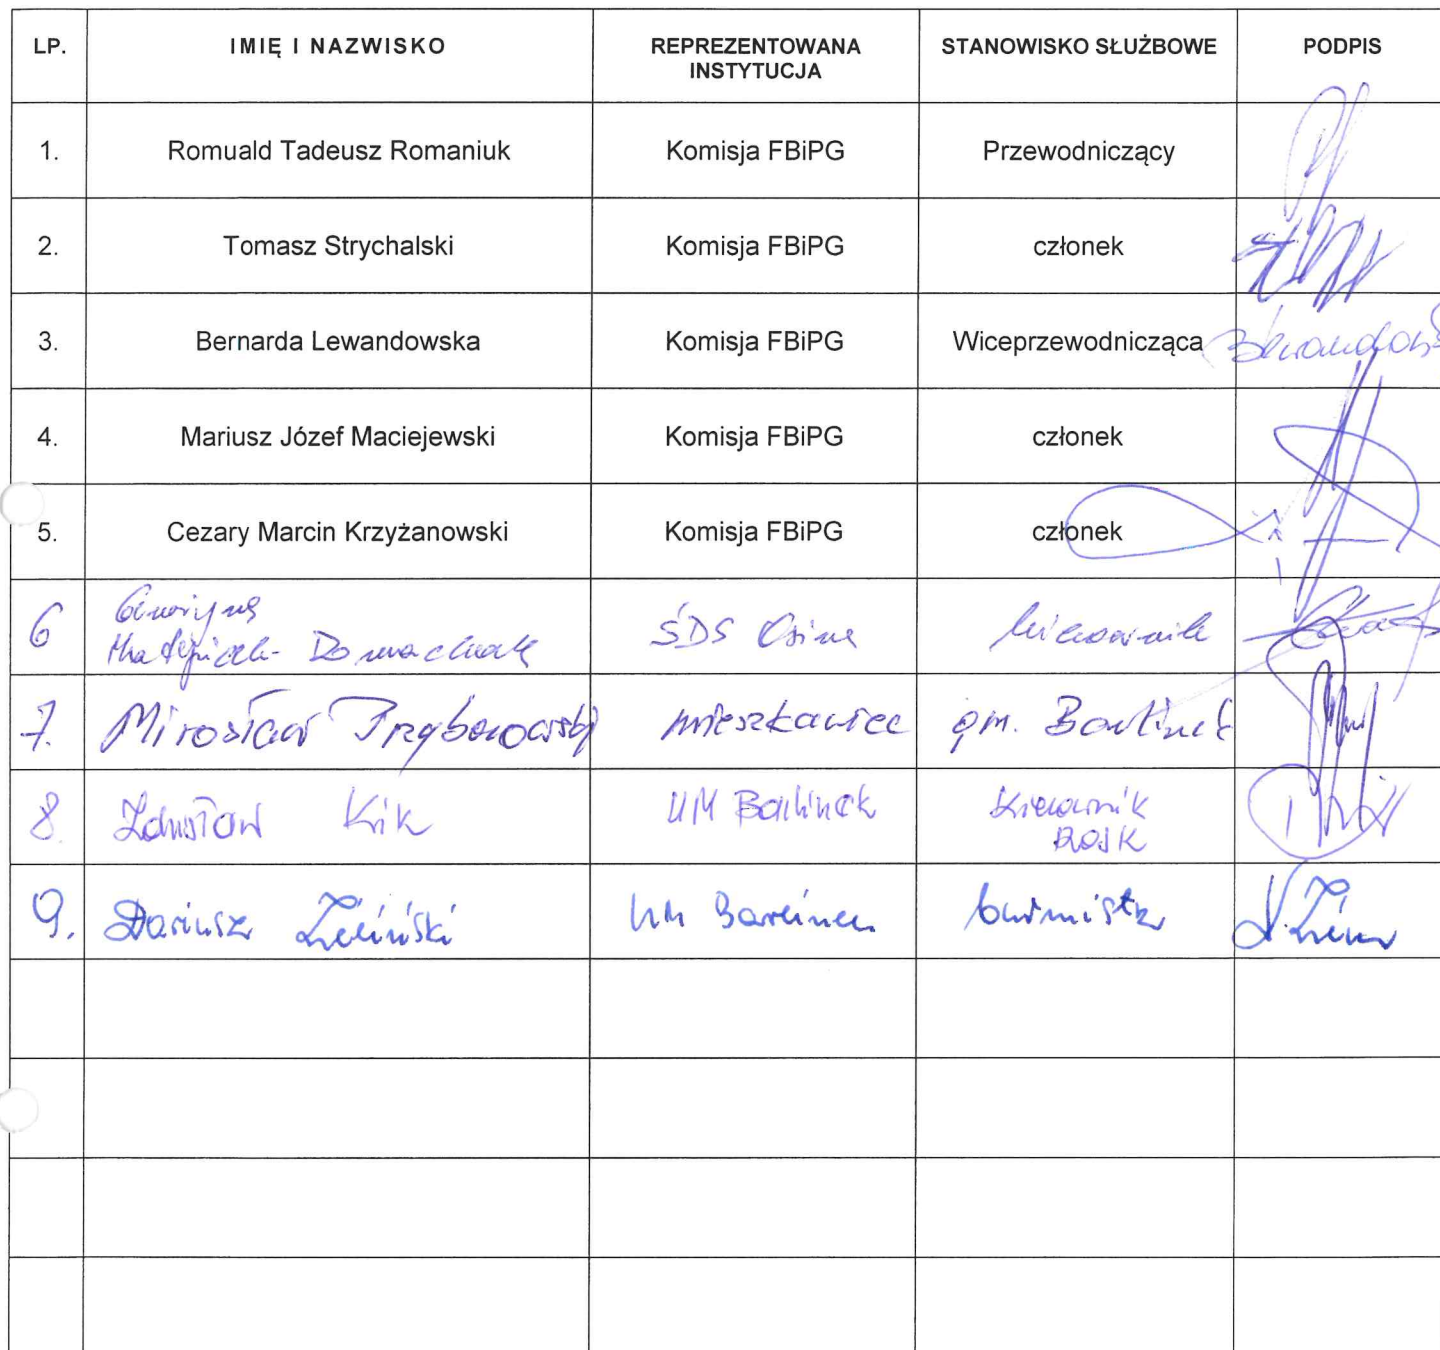 LP. IMIĘ I NAZWISKO REPREZENTOWANA INSTYTUCJA STANOWISKO SŁUŻBOWE PODPIS
1. Romuald Tadeusz Romaniuk Komisja FBiPG Przewodniczący
2. Tomasz Strychalski Komisja FBiPG członek
3. Bernarda Lewandowska Komisja FBiPG Wiceprzewodnicząca
4. Mariusz Józef Maciejewski Komisja FBiPG członek
5. Cezary Marcin Krzyżanowski Komisja FBiPG członek
6 ŚDS Osina kierownik
7. Mirosław Przyborowski mieszkaniec gm. Barlinek
8. Zdzisław Kik UM Barlinek Kierownik
9. Dariusz Zieliński UM Barlinek burmistrz